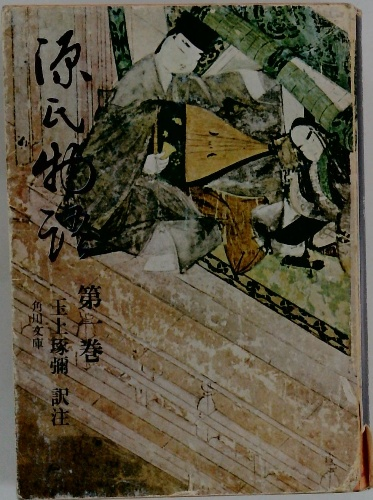 源氏物語
第一巻
玉上琢彌 訳注
角川文庫